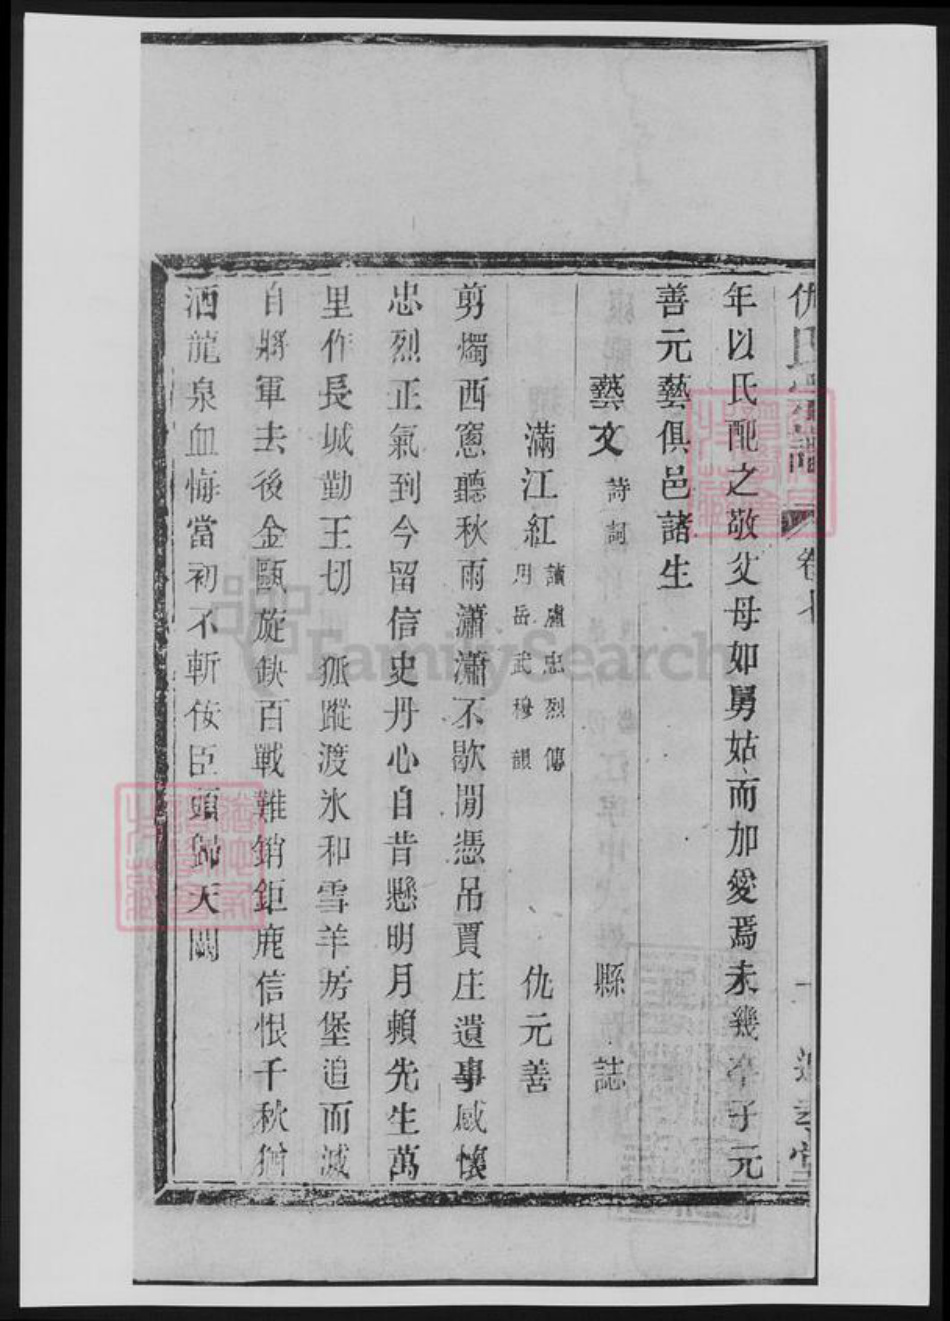 仇氏
卷七
年以氏配之敬父母如舅姑而加愛焉未幾卒子元
善元藝俱邑諸生
藝文 詩詞 縣誌
滿江紅 讀盧忠烈傳 用岳武穆韻 仇元善
剪燭西窻聽秋雨瀟瀟不歇閒憑吊賈庄遺事感懷
忠烈正氣到今留信史丹心自昔懸明月賴先生萬
里作長城勤王切 狐蹤渡氷和雪羊房堡追而滅
自將軍去後金甌旋鈌百戰難銷鉅鹿信恨千秋猶
洒龍泉血悔當初不斬佞臣頭歸天闕
FamilySearch